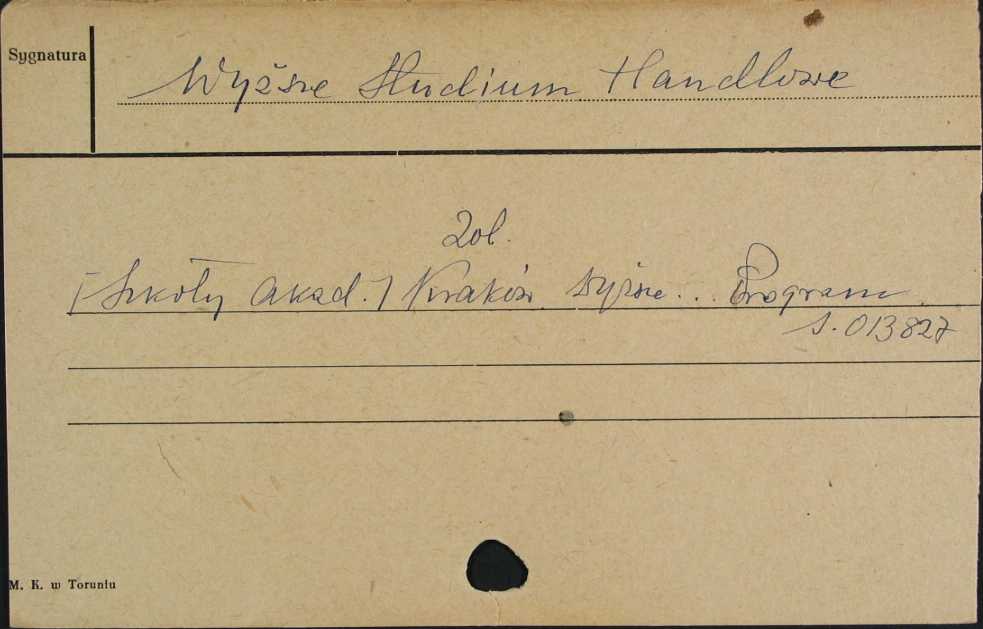 Sygnatura
Wyższe Studium Handlowe
Zob.
[Szkoły Akad.] Kraków. Wyższe... Program.
S. 013827
M. K. w Toruniu